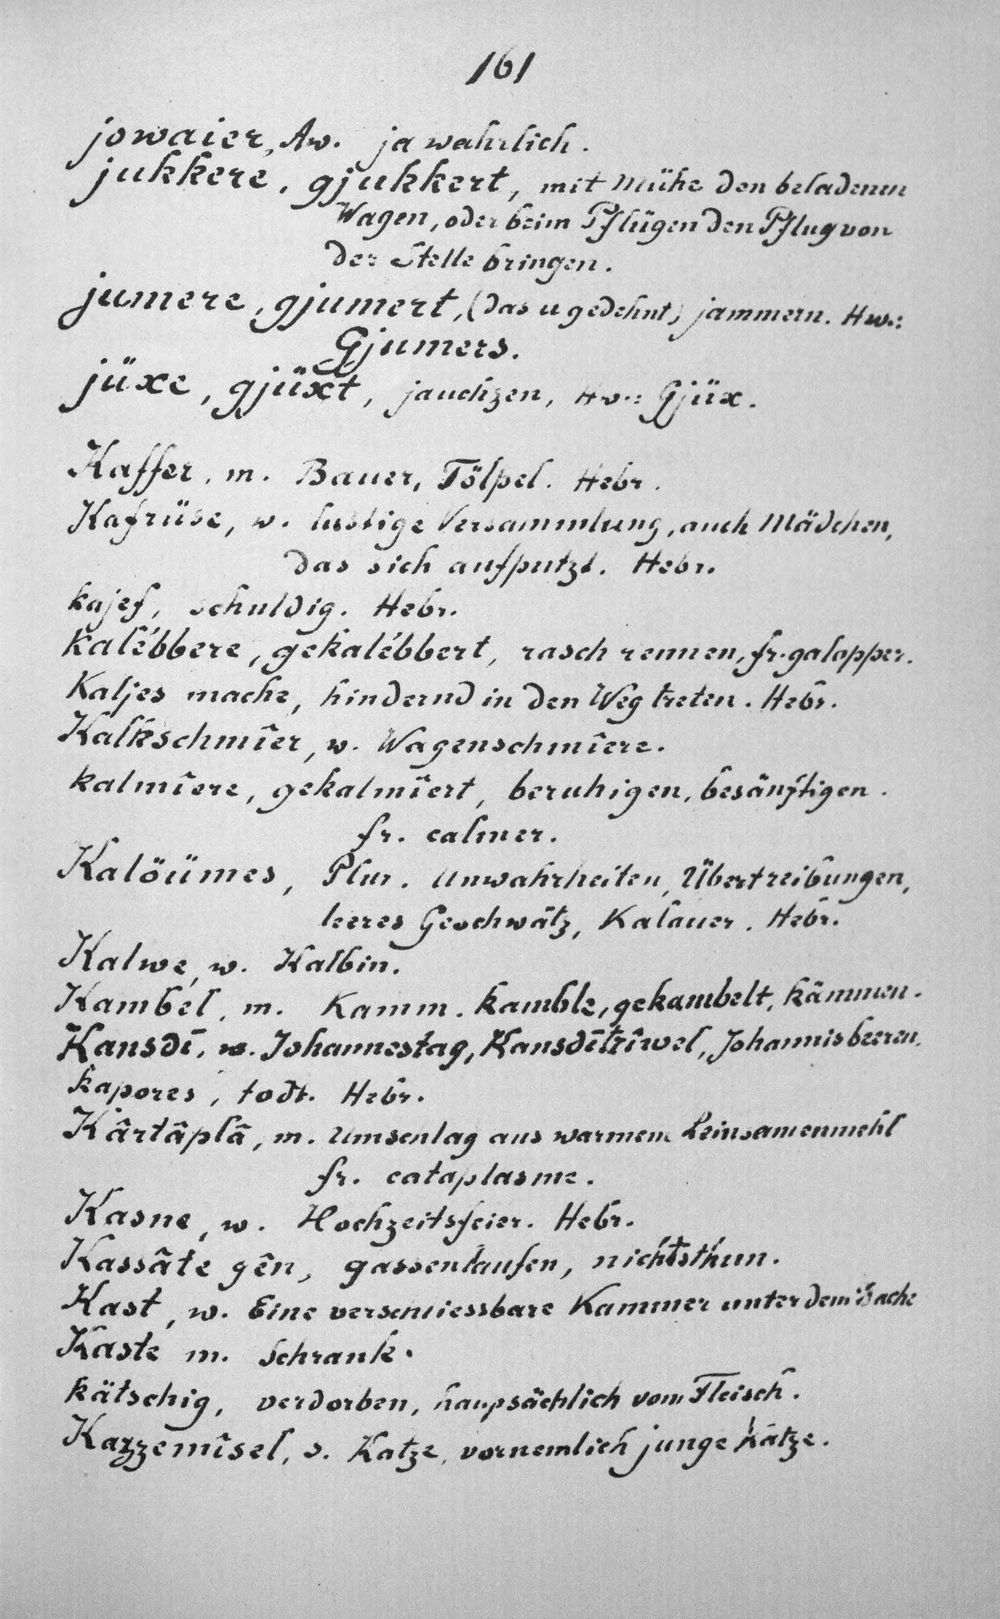 161
jowaier, Aw. ja wahrlich.
jukkere, gjukkert, mit Mühe den beladenen
Wagen, oder beim Pflügen den Pflug von
der Stelle bringen.
jumere, gjumert, (das u gedehnt) jammern. Hw.:
Gjumers.
jüxe, gjüxt, jauchzen, Hw.: Gjüx.
Kaffer, m. Bauer, Tölpel. Hebr.
Kafrüse, w. lustige Versammlung, auch Mädchen,
das sich aufputzt. Hebr.
kajef, schuldig. Hebr.
kalébbere, gekalébbert, rasch rennen, fr. galopper.
Kaljes mache, hindernd in den Weg treten. Hebr.
Kalkschmîer, w. Wagenschmîere.
kalmîere, gekalmîert, beruhigen, besänftigen.
fr. calmer.
Kalöümes, Plur. Unwahrheiten, Übertreibungen,
leeres Geschwätz, Kalauer. Hebr.
Kalwe, w. Kalbin.
Kambel, m. Kamm. kamble, gekambelt, kämmen.
Kansdî, w. Johannestag, Kansdîtrîwel, Johannisbeeren.
kapores, todt. Hebr.
Kârtâplâ, m. Umschlag aus warmem Leinsamenmehl
fr. cataplasme.
Kasne, w. Hochzeitsfeier. Hebr.
Kassâte gên, gassenlaufen, nichtsthun.
Kast, w. Eine verschliessbare Kammer unter dem Dache
Kaste m. Schrank.
kätschig, verdorben, haupsächlich vom Fleisch.
Kazzemîsel, s. Katze, vornemlich junge Katze.